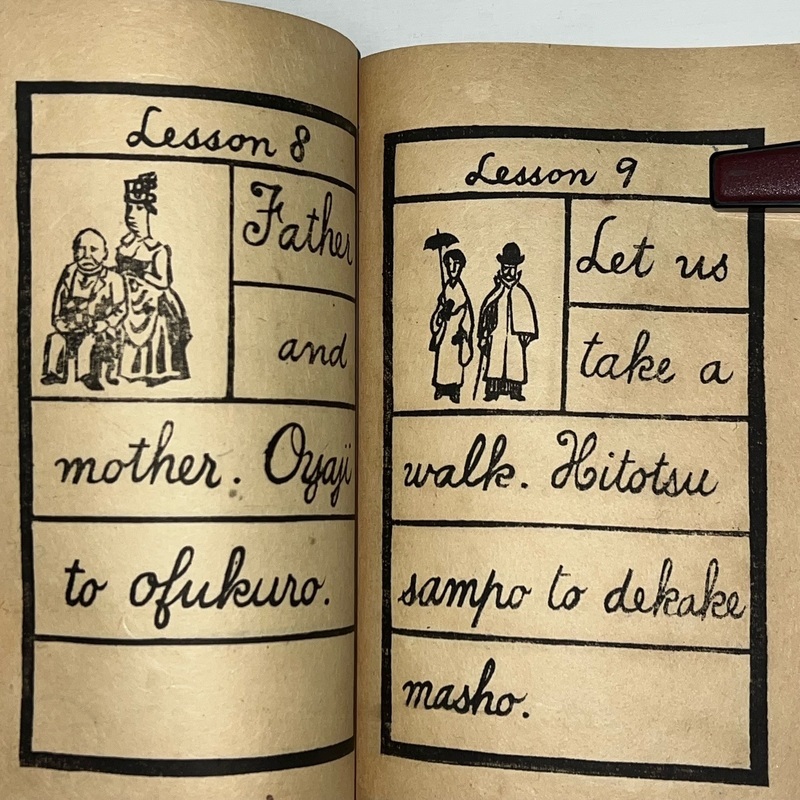 Lesson 8
Father
and
mother. Oyaji
to ofukuro.
Lesson 9
Let us
take a
walk. Hitotsu
sampo to dekake
masho.